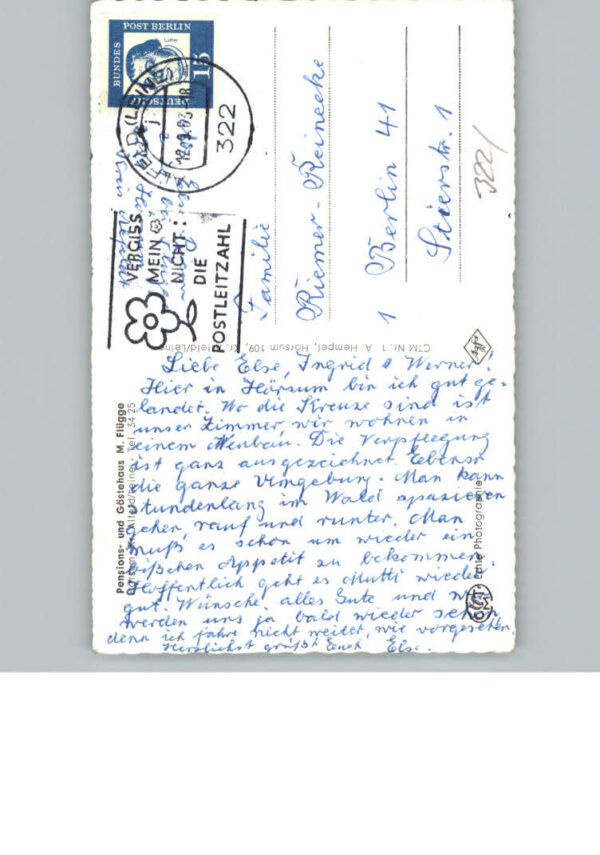 DEUTSCHE
BUNDES
POST BERLIN
Luther
15
FELD (LEINE)
12.9.63-18
322
VERGISS
MEIN
NICHT:
DIE
POSTLEITZAHL
Familie
Riemer-Reinecke
1 Berlin 41
Stierstr. 1
322/
CTM Nr. 1 A. Hempel, Hörsum 109, Kr. Alfeld/Leine
Agfa
Pensions- und Gästehaus M. Flügge
Alfeld/Leine, Tel. 34 25
Echte Photographie
Liebe Else, Ingrid & Werner!
Hier in Hörsum bin ich gut ge-
landet. Wo die Kreuze sind ist
unser Zimmer, wir wohnen in
einem Neubau. Die Verpflegung
ist ganz ausgezeichnet. Ebenso
die ganze Umgebung. Man kann
stundenlang im Wald spazieren
gehen, rauf und runter. Man
muß es schon um wieder ein
bißchen Appetit zu bekommen.
Hoffentlich geht es Mutti wieder
gut. Wünsche alles Gute und wir
werden uns ja bald wieder sehen,
denn ich fahre nicht weiter, wie vorgesehen.
Herzlichst grüßt Euch Else.